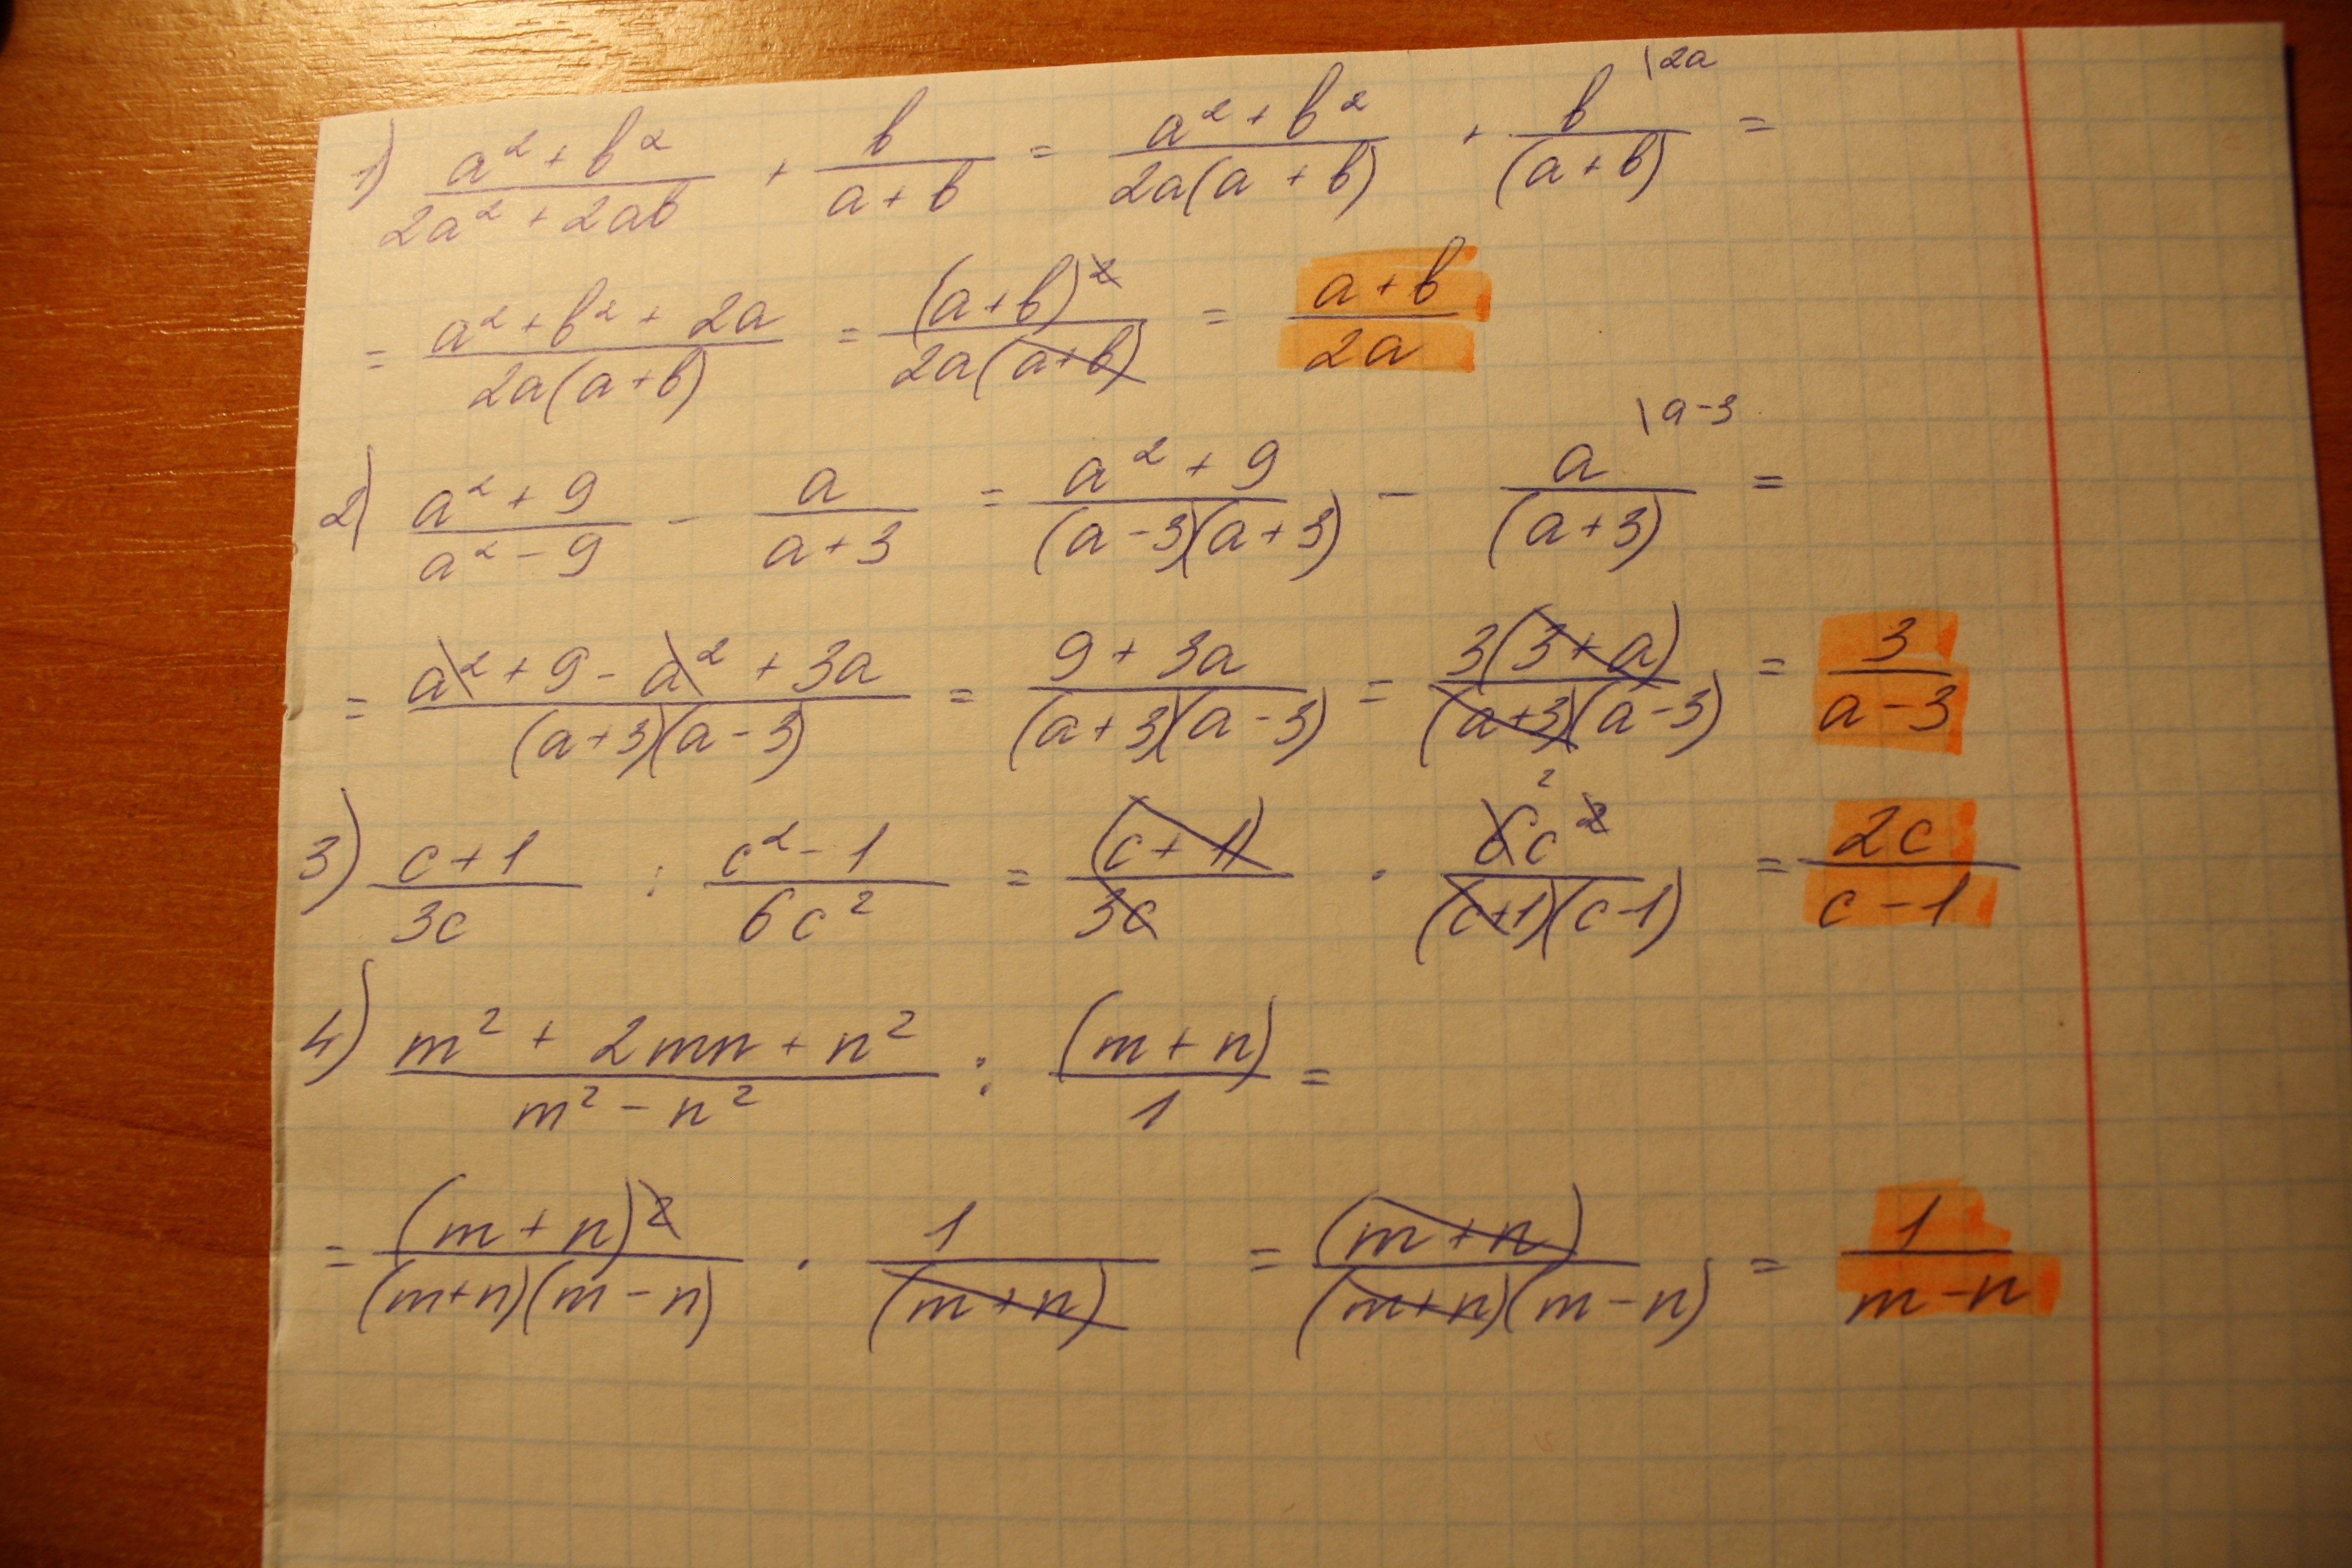 1) (a² + b²)/(2a² + 2ab) + b/(a + b) = (a² + b²)/(2a(a + b)) + b\2a/(a + b) =
= (a² + b² + 2a)/(2a(a+b)) = (a+b)²/(2a(a+b)) = (a + b)/(2a)
2) (a² + 9)/(a² - 9) - a/(a + 3) = (a² + 9)/((a - 3)(a + 3)) - a\a-3/(a + 3) =
= (a² + 9 - a² + 3a)/((a+3)(a-3)) = (9 + 3a)/((a+3)(a-3)) = 3(3+a)/((a+3)(a-3)) = 3/(a-3)
3) (c+1)/(3c) : (c² - 1)/(6c²) = (c+1)/(3c) · 6² c²/((c+1)(c-1)) = 2c/(c-1)
4) (m² + 2mn + n²)/(m² - n²) : (m + n)/1 =
= (m + n)²/((m+n)(m-n)) · 1/(m+n) = (m+n)/((m+n)(m-n)) = 1/(m-n)